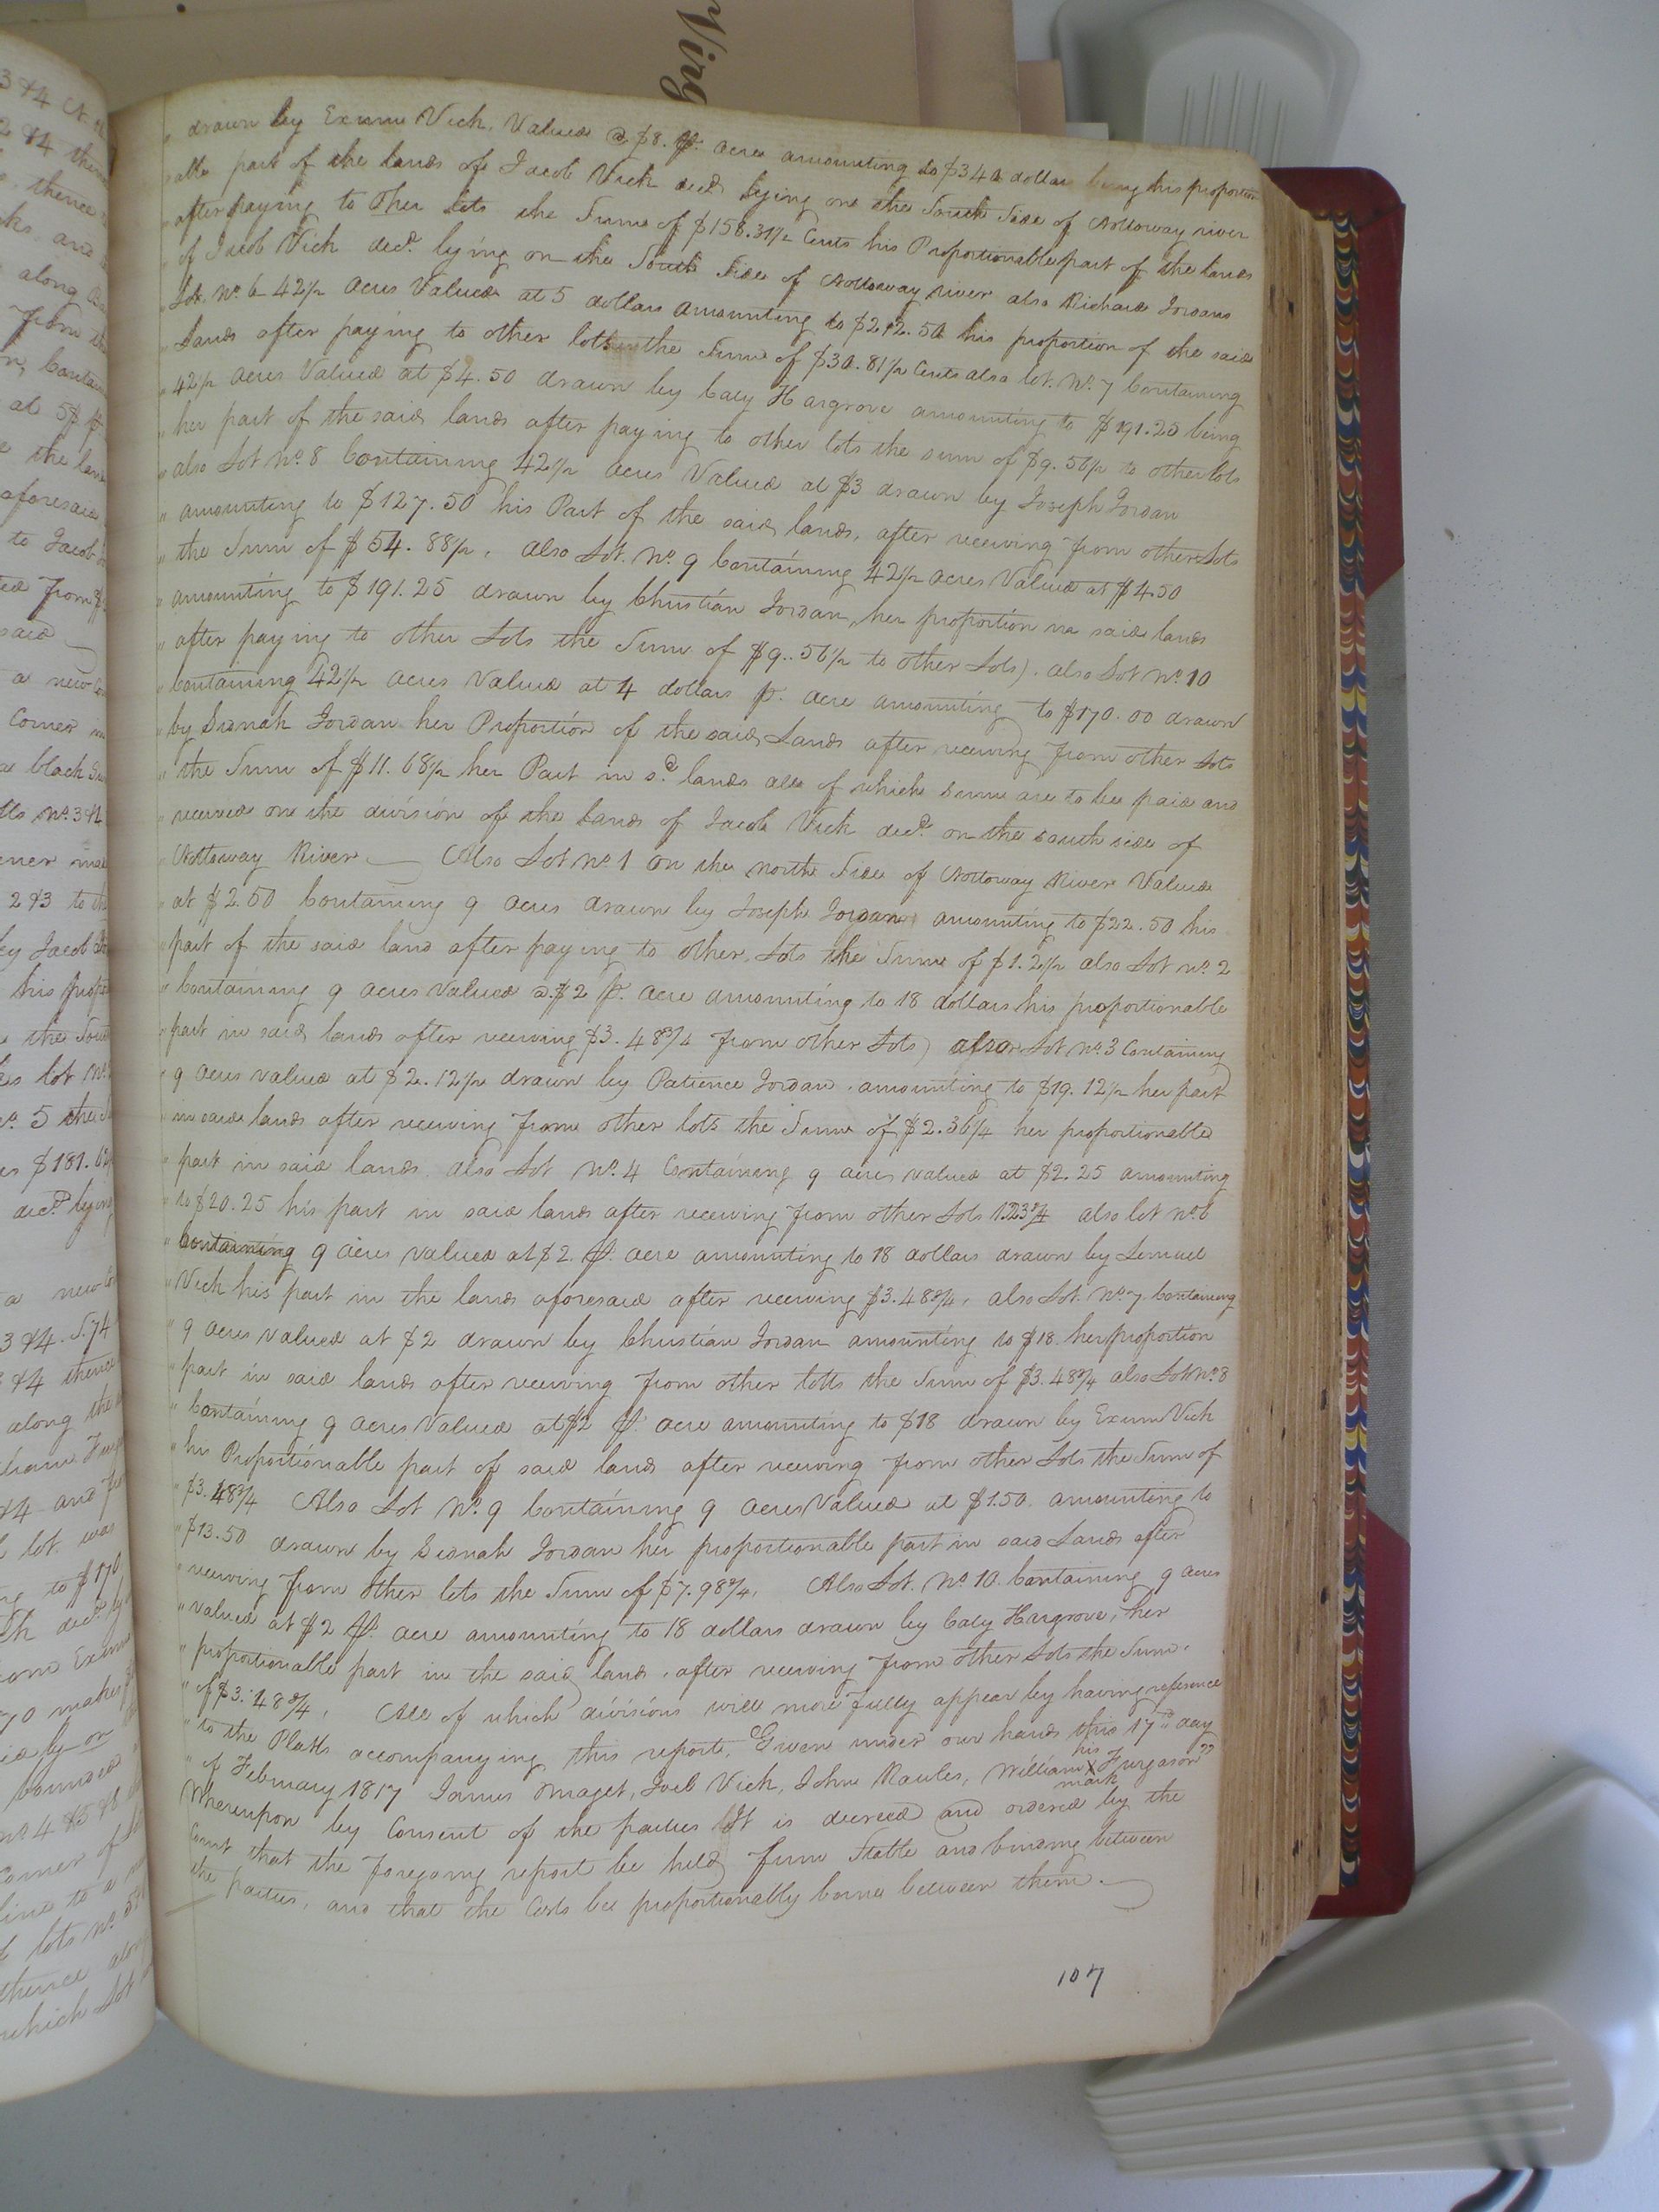 Virg
3 & 4
2 & 4 then
thence
and
along
from
at 5$ p.
the lan
aforesaid
to Jacob
from
said
a new
Corner
a black
No. 3 & 4
2 & 3 to the
by Jacob
his propo
the Sou
lot No.
5 the
$181.
decd. lying
a new
3 & 4. S. 74
& 4 thence
along the
& 4 and
lot was
to $170
decd.
Exum
70 makes
by or
bounded
No. 4 & 5 & 6
Corner of
line to a
lots No. 5
thence along
which Lot
" drawn by Exum Vick, Valued @ $8. p. acre amounting to $340 dollars being his proportion
" able part of the lands of Jacob Vick decd lying on the South Side of Nottoway river
" after paying to Other Lots the Sum of $158.31½ Cents his Proportionable part of the lands
" of Jacob Vick decd. lying on the South Side of Nottoway river also Richard Jordans
" Lot. No. 6 42½ acres Valued at 5 dollars amounting to $212.50 his proportion of the said
" Lands after paying to other lotts the Sum of $30.81½ Cents also lot. No. 7 Containing
" 42½ acres Valued at $4.50 drawn by Caty Hargrove amounting to $191.25 being
" her part of the said lands after paying to other lots the sum of $9.56½ to other lots
" also Lot No. 8 Containing 42½ acres Valued at $3 drawn by Joseph Jordan
" amounting to $127.50 his Part of the said lands, after receiving from other Lots
" the Sum of $54.88½, also Lot. No. 9 Containing 42½ acres Valued at $4.50
" amounting to $191.25 drawn by Christian Jordan, her proportion in said lands
" after paying to other Lots the Sum of $9..56½ to other Lots). also Lot No. 10
" Containing 42½ acres Valued at 4 dollars p. acre amounting to $170.00 drawn
" by Sidnah Jordan her Proportion of the said Lands after receiving from other Lots
" the Sum of $11.68½ her Part in sd. lands all of which sums are to be paid and
" received on the division of the lands of Jacob Vick decd. on the south side of
" Nottoway River — Also Lot No. 1 on the North Side of Nottoway River Valued
" at $2.50 Containing 9 acres drawn by Joseph Jordan amounting to $22.50 his
" part of the said land after paying to other, Lots the Sum of $1.2½ also Lot No. 2
" Containing 9 acres Valued @ $2 p. acre amounting to 18 dollars his proportionable
" part in said lands after receiving $3.48¾ from other Lots) also Lot No. 3 Containing
" 9 acres valued at $2.12½ drawn by Patience Jordan. amounting to $19.12½ her part
" in said lands after receiving from other lots the Sum of $2.36¼ her proportionable
" part in said lands, also Lot No. 4 Containing 9 acres valued at $2.25 amounting
" to $20.25 his part in said lands after receiving from other Lots 1.23¾ also lot No. 6
" Containing 9 acres valued at $2. p. acre amounting to 18 dollars drawn by Lemuel
" Vick his part in the lands aforesaid after receiving $3.48¾, also Lot. No. 7. Containing
" 9 acres valued at $2 drawn by Christian Jordan amounting to $18. her proportion
" part in said lands after receiving from other lotts the Sum of $3.48¾ also Lot No. 8
" Containing 9 acres Valued at $2 p. acre amounting to $18 drawn by Exum Vick
" his Proportionable part of said lands after receiving from other Lots the Sum of
" $3.48¾ Also Lot No. 9 Containing 9 acres Valued at $1.50. amounting to
" $13.50 drawn by Sidnah Jordan her proportionable part in said Lands after
" receiving from other lots the Sum of $7.98¾. Also Lot. No. 10. Containing 9 acres
" valued at $2 p. acre amounting to 18 dollars drawn by Caty Hargrove, her
" proportionable part in the said lands, after receiving from other Lots the Sum.
" of $3.48¾, All of which divisions will more fully appear by having reference
" to the Platts accompanying this report, Given under our hands this 17th day
" of February 1817 James Maget, Joel Vick, John Raules, William his X mark Furgason"
Whereupon by Consent of the parties It is decreed and ordered by the
Court that the foregoing report be held firm Stable and binding between
the parties, and that the Costs be proportionally borne between them.
107